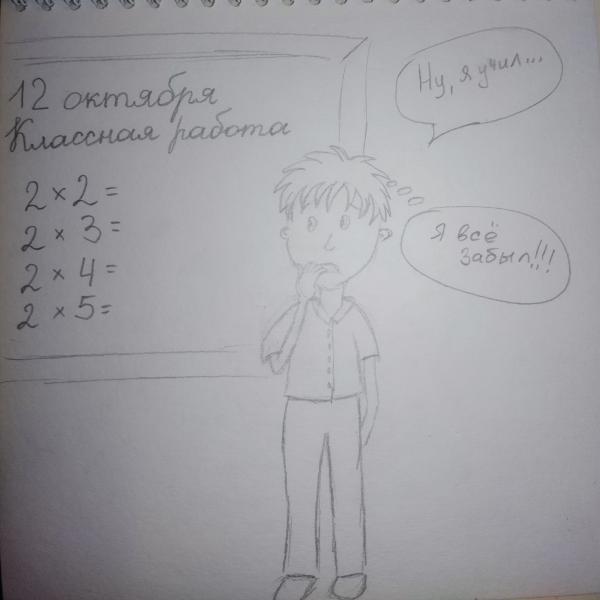 12 октября
Классная работа
2 × 2 =
2 × 3 =
2 × 4 =
2 × 5 =
Ну, я учил...
Я всё
забыл!!!